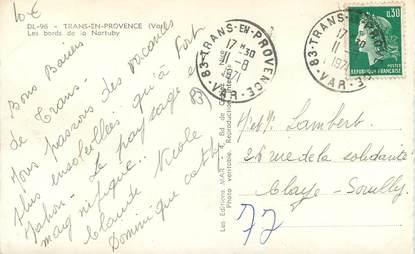 10-€
DL-96 - TRANS-EN-PROVENCE (Var)
Les bords de la Nartuby
Bons Baisers
de Trans.
Nous passons des vacances
plus ensoleillées qu'à Fort
Mahon. Le paysage est
magnifique...
Claude Nicole
Dominique Cathy
Les Editions MAR
Photo véritable. Reproduction
83 - TRANS-EN-PROVENCE
17 H 30
11-8
1971
VAR
83 - TRANS-EN-PROVENCE
17 H 30
11-8
1971
VAR
0,30
REPUBLIQUE FRANCAISE
M et Mme Lambert
26 rue de la solidarité
Claye-Souilly
77